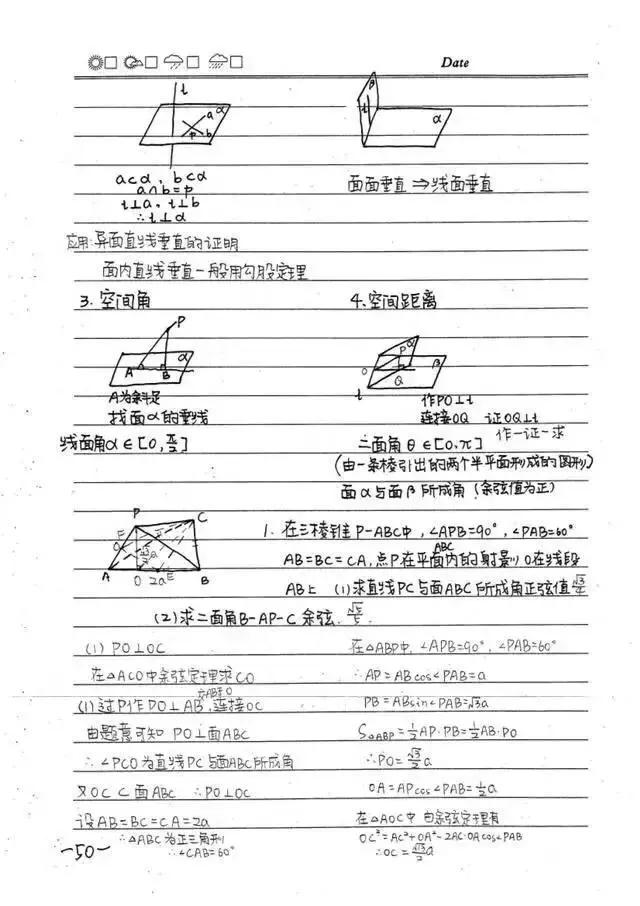 Date
t
α
a
b
P
β
t
α
a⊂α, b⊂α
a∩b=P
t⊥a, t⊥b
∴t⊥α
面面垂直⇒线面垂直
应用:异面直线垂直的证明
面内直线垂直一般用勾股定理
3. 空间角
4.空间距离
P
α
A
B
P
α
β
O
Q
t
A为斜足
找面α的垂线
作PO⊥t
连接OQ 证OQ⊥t
作一证一求
线面角α∈[0,π/2]
二面角θ∈[0,π]
(由一条棱引出的两个半平面形成的图形)
面α与面β所成角(余弦值为正)
P
C
F
A
O
2a
E
B
1. 在三棱锥P-ABC中,∠APB=90°,∠PAB=60°
AB=BC=CA,点P在平面ABC内的射影O在线段
AB上 (1)求直线PC与面ABC所成角正弦值
(2)求二面角B-AP-C余弦. √5/5.
(1) PO⊥OC
在△ACO中余弦定理求CO
(1)过P作PO⊥AB交AB于O,连接OC
由题意可知 PO⊥面ABC
∴∠PCO为直线PC与面ABC所成角
又OC⊂面ABC ∴PO⊥OC
设AB=BC=CA=2a
∴△ABC为正三角形
∴∠CAB=60°
在△ABP中,∠APB=90°,∠PAB=60°
∴AP=ABcos∠PAB=a
PB=ABsin∠PAB=√3a
S△ABP=1/2AP·PB=1/2AB·PO
∴PO=√3/2a
OA=APcos∠PAB=1/2a
在△AOC中 由余弦定理有
OC²=AC²+OA²-2AC·OAcos∠PAB
∴OC=√13/2a
-50-